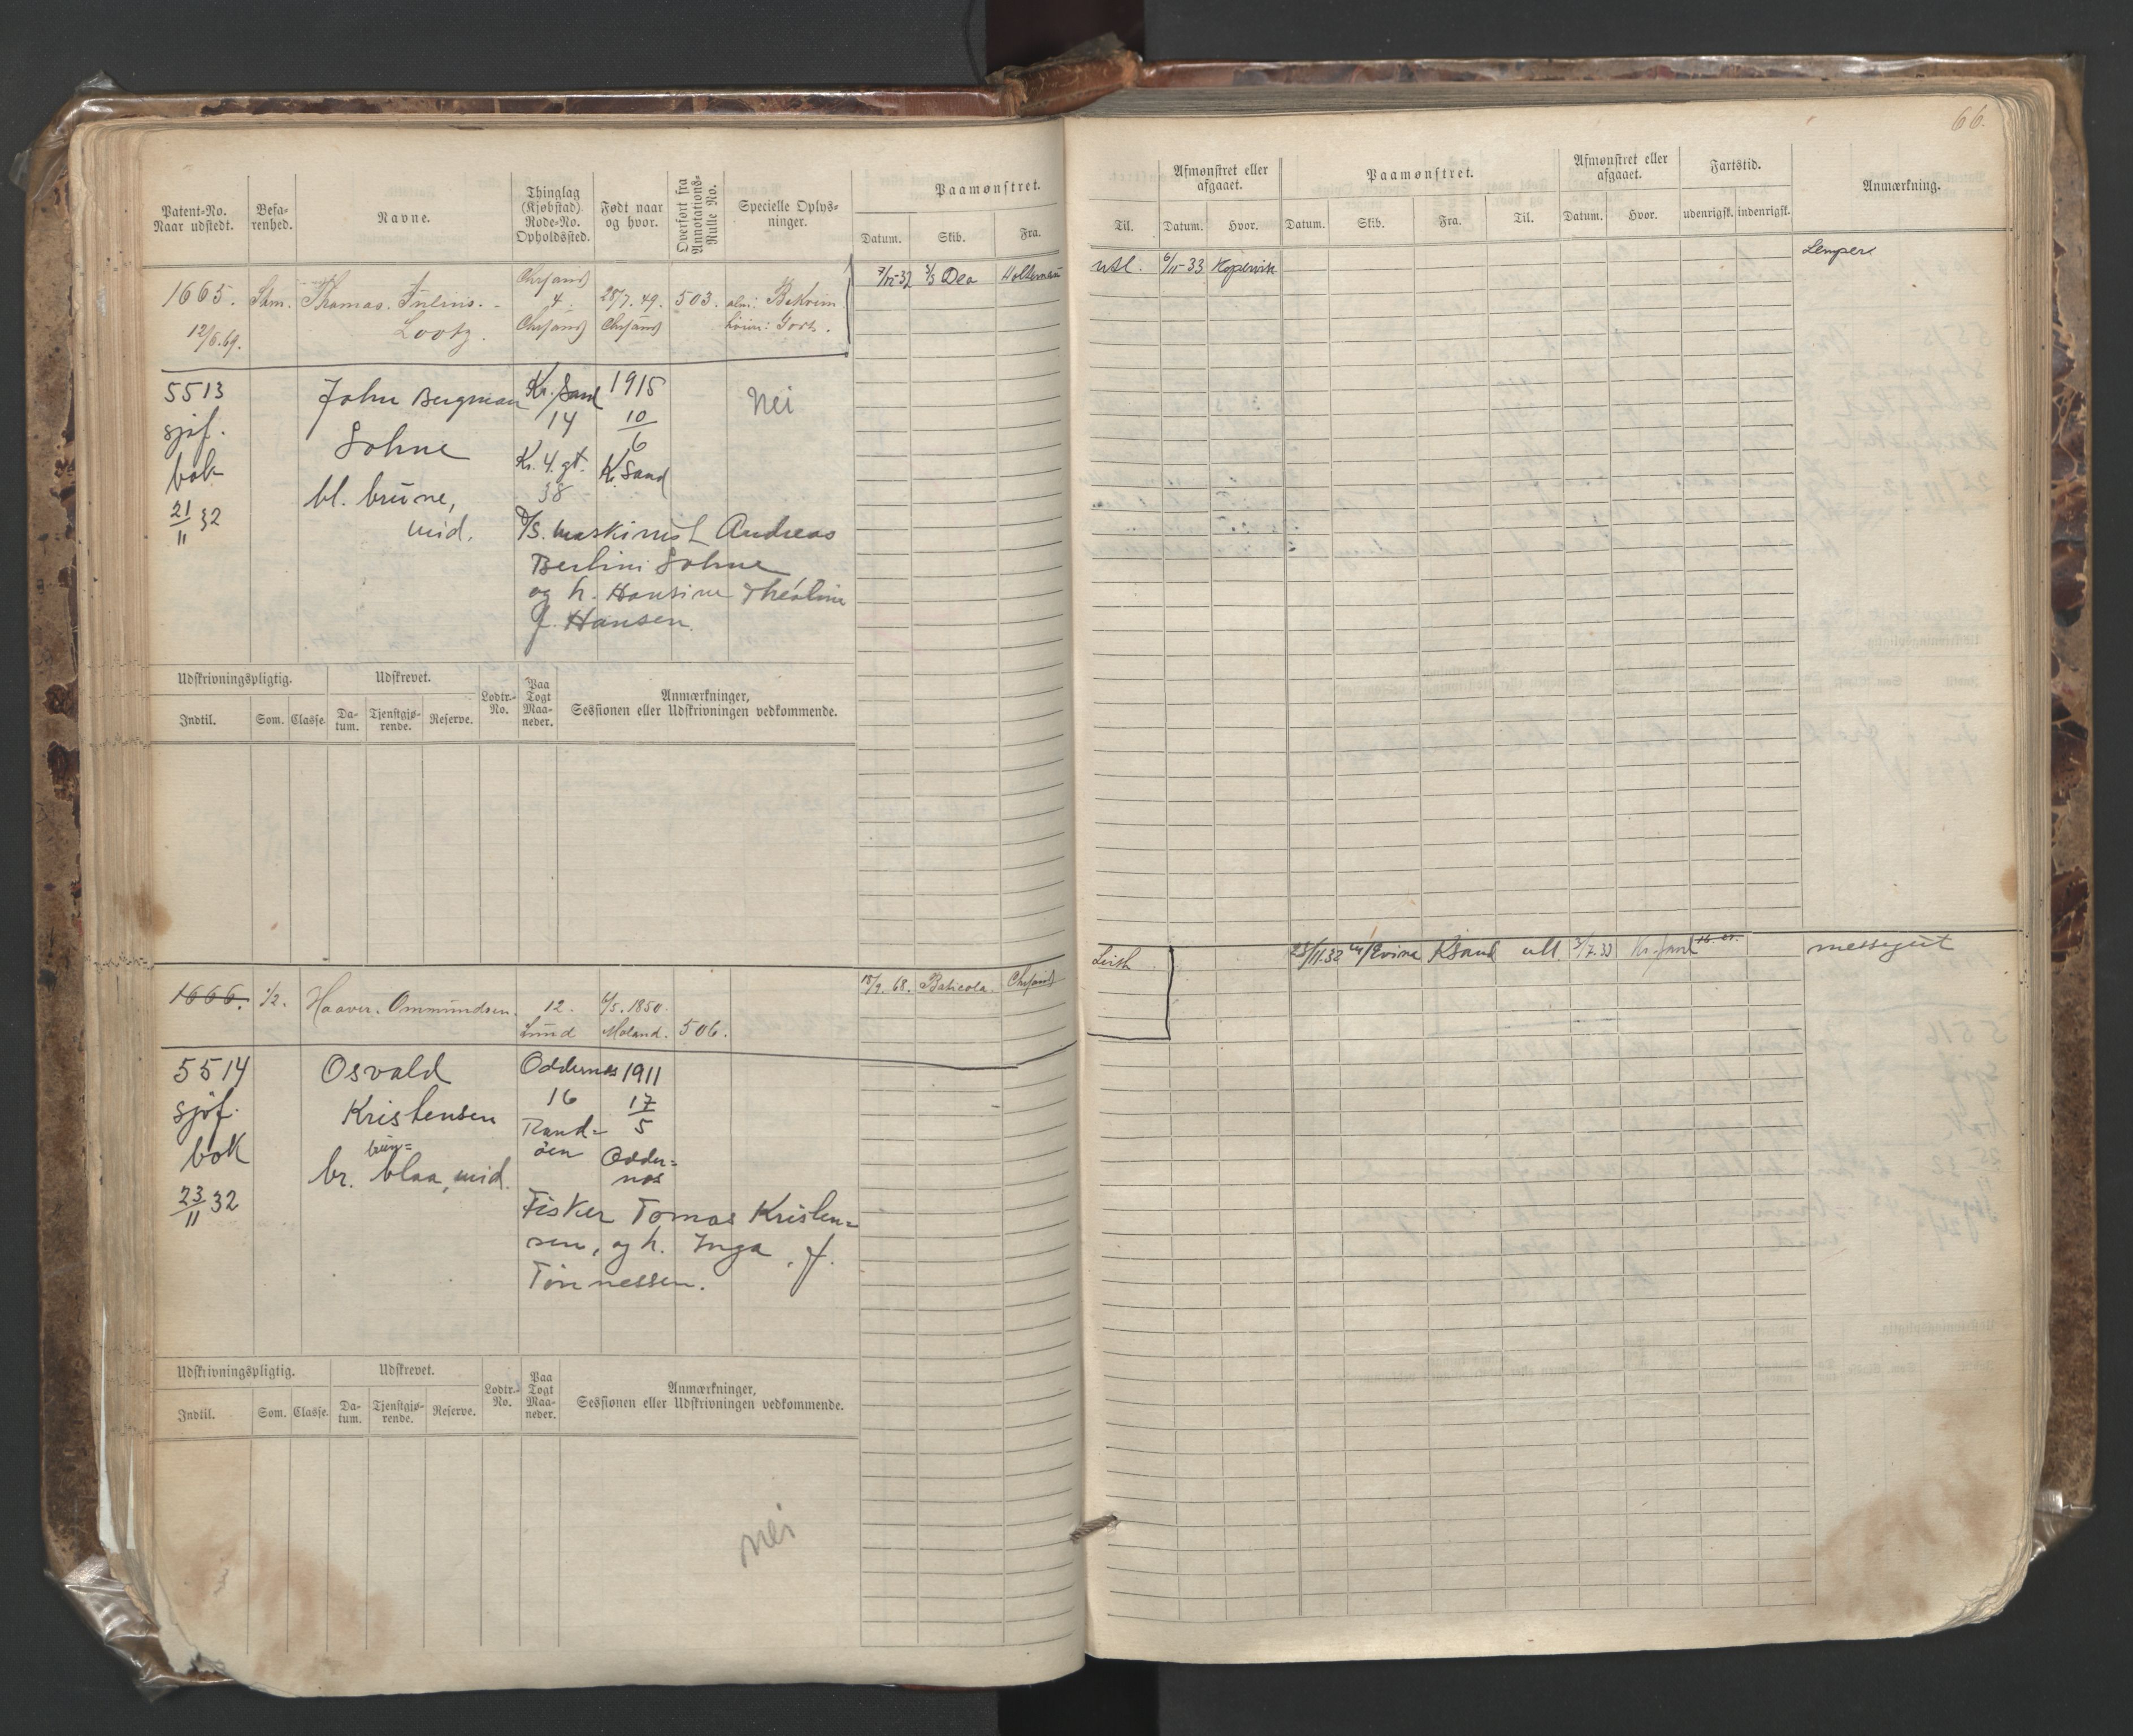 66.
Patent-No. Naar udstedt.
Befarenhed.
Navne.
Thinglag (Kjøbstad) Rode-No. Opholdssted.
Født naar og hvor.
Overført fra Annotations-Rulle No.
Specielle Oplysninger.
Paamønstret.
Datum. Skib. Fra. Til.
Afmønstret eller afgaaet.
Datum. Hvor.
Paamønstret.
Datum. Skib. Fra. Til.
Afmønstret eller afgaaet.
Datum. Hvor.
Fartstid.
udenrigsk. indenrigsk.
Anmærkning.
1665.
12/6.69.
Thomas. Julius.
Lootz.
Chrsand
4.
Chrsand
28/7. 49.
Chrsand
503.
32 Dea
utl. 33 Kopervik
Lemper
5513
sjøf.
bok
21/11 32
John Bergman
Sohne
bl. brune,
mid.
Kr. Sand
14
Kr. 4. gt.
38
1915
10/6
Kr. Sand
Nei
D/S. maskinist Andreas
Berlin Sohne
og h. Hansine Theoline
f. Hansen.
Udskrivningspligtig. Udskrevet. Lodtr.-No. Paa Togt Maaneder. Anmærkninger, Sessionen eller Udskrivningen vedkommende.
Indtil. Som. Classe. Datum. Tjenstgjørende. Reserve.
1666. 1/2. Haaver. Ommundsen.
12.
Lund
6/5. 1850.
Moland. 506.
18/9. 68. Chrsand
Leith
23/11.32 Kr.sand utl 3/7.33 Kr.sand
messegut
5514
sjöf.
bok
23/11 32
Osvald
Kristensen
brun=
br. blaa, mid.
Oddernes
16
Rand=
öen
1911
17/5
Odder=
nes
Fisker Tomas Kristen=
sen, og h. Inga, f.
Tönnessen.
Udskrivningspligtig. Udskrevet. Lodtr.-No. Paa Togt Maaneder. Anmærkninger, Sessionen eller Udskrivningen vedkommende.
Indtil. Som. Classe. Datum. Tjenstgjørende. Reserve.
nei